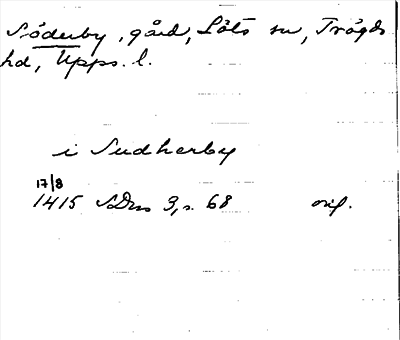 Söderby, gård, Löts sn, Trögds
hd, Upps. l.
i Sudherby
17/8
1415 SDns 3, s. 68 orig.